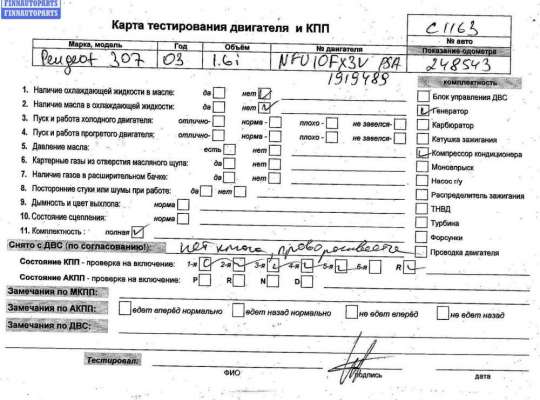 FINNAUTOPARTS
FINNAUTOPARTS
FINNAUTOPARTS
Карта тестирования двигателя и КПП
C1163
№ авто
Марка, модель Год Объём № двигателя Показание одометра
Peugeot 307 03 1.6i NFU10FX3V PSA 248543
1919489
комплектность
1. Наличие охлаждающей жидкости в масле: да нет
Блок управления ДВС
2. Наличие масла в охлаждающей жидкости: да нет
Генератор
3. Пуск и работа холодного двигателя: отлично- норма - плохо - не завелся-
Карбюратор
4. Пуск и работа прогретого двигателя: отлично- норма - плохо - не завелся-
Катушка зажигания
5. Давление масла: есть нет
Компрессор кондиционера
6. Картерные газы из отверстия масляного щупа: да нет
Моновпрыск
7. Наличие газов в расширительном бачке: да нет
Насос г/у
8. Посторонние стуки или шумы при работе: да нет
Распределитель зажигания
9. Дымность и цвет выхлопа: норма
ТНВД
10. Состояние сцепления: норма
Турбина
11. Комплектность : полная
Форсунки
Снято с ДВС (по согласованию!): нет
Проводка двигателя
Состояние КПП - проверка на включение: 1-я 2-я 3-я 4-я 5-я 6-я R
Состояние АКПП - проверка на включение: P R N D
Замечания по МКПП:
Замечания по АКПП: едет вперёд нормально едет назад нормально не едет вперёд не едет назад
Замечания по ДВС:
Тестировал:
ФИО подпись дата